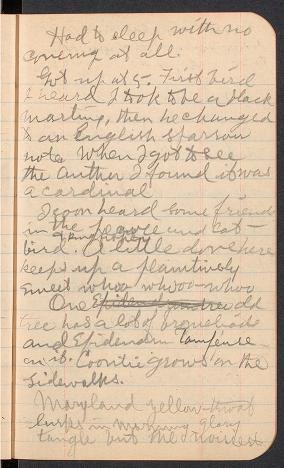 Had to sleep with no
covering at all.
Got up at 5. First bird
I heard I took to be a black
martin, then he changed
to an English sparrow
note. When I got to see
the author I found it was
a cardinal
I soon heard some friends
in the and cat-
bird. A little dove here
keeps up a plaintively
sweet whoo whoo-whoo
One old
tree has a lot of
and Epidendrum Tampense
on it. Coontie grows on the
sidewalks.
Maryland yellow-throat
lurks in morning glory
tangle but the noisiest